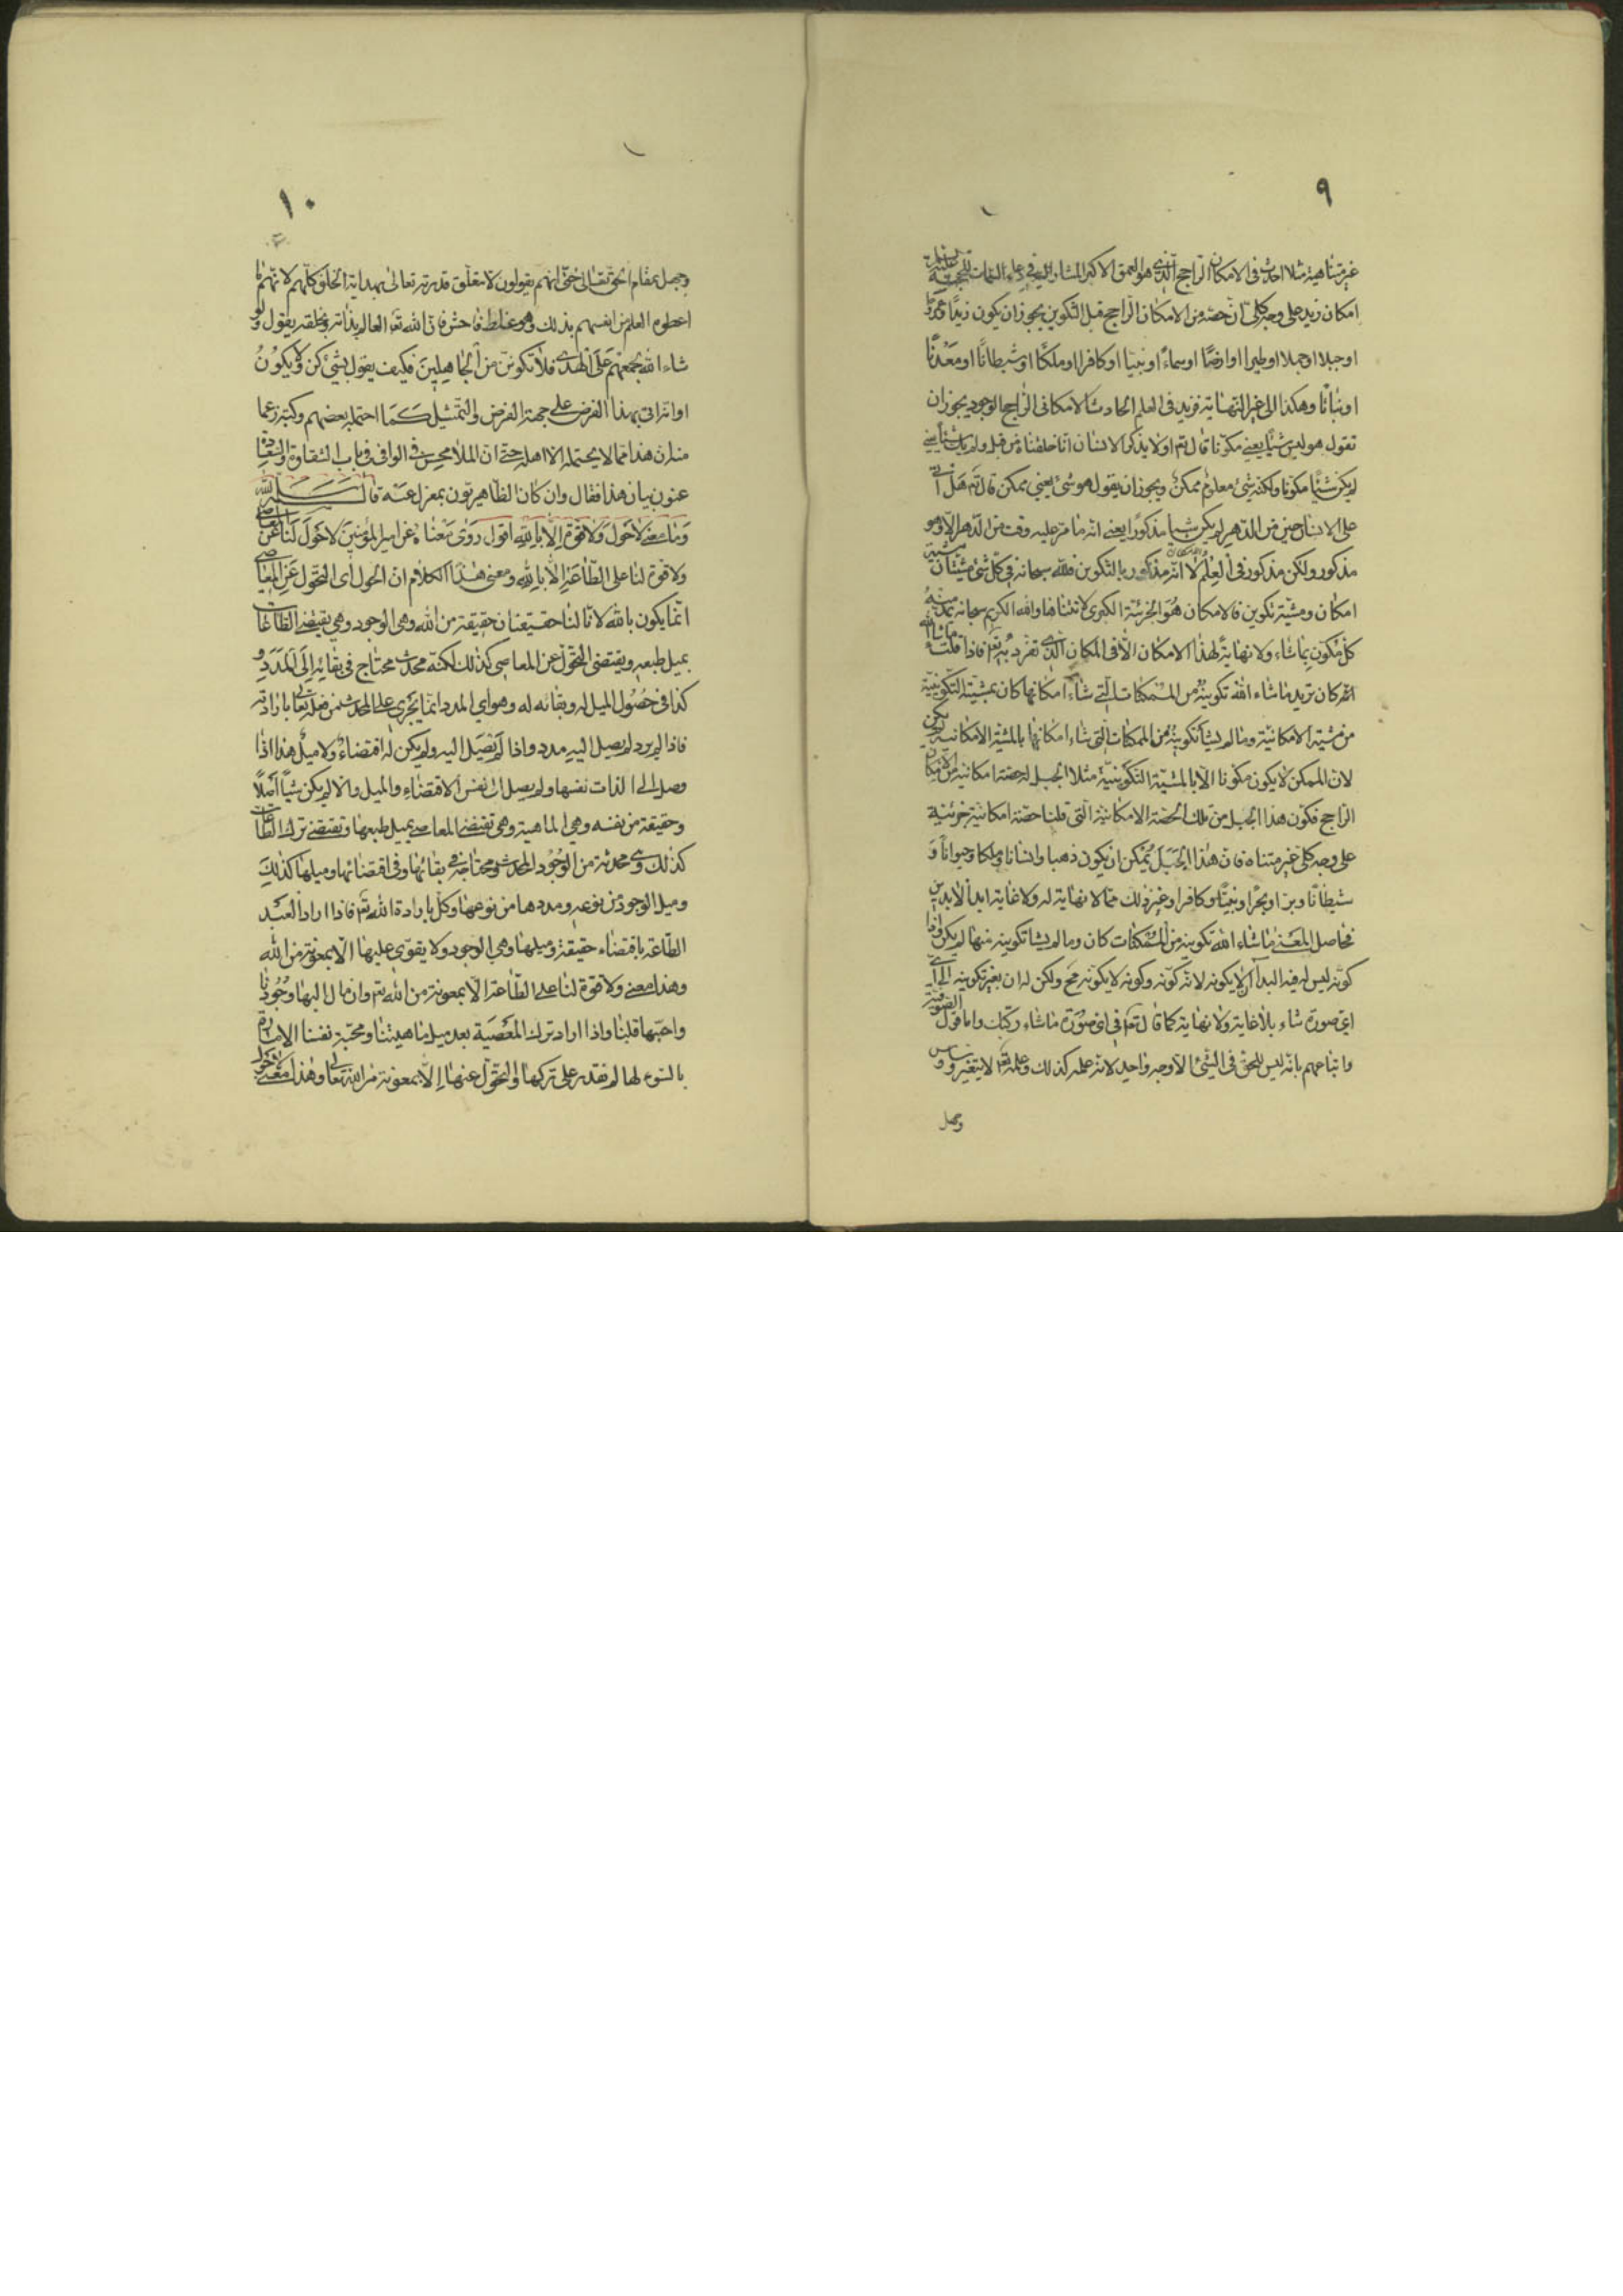 ٩
غير متناهية مثلا احدث فى الامكان الراجح الذى هو العمق الاكبر المشار اليه فى دعاء السمات
امكان زيد على وجه كلى اى حصة من الامكان الراجح قبل التكوين يجوز ان يكون زيدا
او جبلا او جملا او طيرا او ارضا او سماء او نبيا او كافرا او ملكا او شيطانا او معدنا
او نباتا وهكذا الى غير النهاية فزيد فى العلم الحادث الامكانى الراجح الوجود يجوز ان
تقول هو ليس شيئا يعنى مكونا قال تع اولا يذكر الانسان انا خلقناه من قبل ولم يك شيئا يعنى
لم يكن شيئا مكونا ولكنه شئ معلوم ممكن ويجوز ان يقول هو شئ يعنى ممكن قال تع هل اتى
على الانسان حين من الدهر لم يكن شيئا مذكورا يعنى انه ما مر عليه وقت من الدهر الا وهو
مذكور ولكن مذكور فى العلم الامكان لا انه مذكور بالتكوين فلله سبحانه فى كل شئ مشيتان مشية
امكان ومشية تكوين فالامكان هو الخزينة الكبرى لا تتناها والله الكريم سبحانه يمد منه
كل مكون بما شاء ولا نهاية لهذا الامكان الا فى المكان الذى تفرد به تع فاذا قلت ما شاء
الله كان تريد ما شاء الله تكوينه من الممكنات التى شاء امكانها كان بمشيته التكوينية
من مشيته الامكانية وما لم يشأ تكوينه من الممكنات التى شاء امكانها بالمشية الامكانية لم يكن
لان الممكن لا يكون مكونا الا بالمشية التكوينية مثلا الجبل له حصة امكانية من الامكان
الراجح فكون هذا الجبل من تلك الحصة الامكانية التى قلنا حصة امكانية جزئية
على وجه كلى غير متناه فان هذا الجبل يمكن ان يكون ذهبا وانسانا وملكا وحيوانا و
شيطانا وبرا وبحرا ونبيا وكافرا وغير ذلك مما لا نهاية له ولا غاية ابد الابدين
فحاصل المعنى ما شاء الله تكوينه من الممكنات كان وما لم يشا تكوينه منها لم يكن واذا
كونه ليس له فيه البدا ان لا يكونه لانه كونه وكونه لا يكونه مح ولكن له ان يغير تكوينه الى اى
اى صورة شاء بلا غاية ولا نهاية كما قال تع فى اى صورة ما شاء ركبك واما قول الصوفية
واتباعهم بانه ليس للحق فى الشئ الا وجه واحد لانه علمه كذلك وعلمه تع لا يتغير و
وجعل
١٠
وجهل بمقام الحق تعالى حتى انهم يقولون لا تتعلق قدرته تعالى بهداية الخلق كلهم لانهم ما
اعطوه العلم من انفسهم بذلك وهو غلط فاحش فان الله تع العالم بذاته وبخلقه يقول ولو
شاء الله لجمعهم على الهدى فلا تكونن من الجاهلين فكيف يقول لشئ كن ولا يكون
او انه اتى بهذا الفرض على جهة الفرض والتمثيل كما احتمله بعضهم وكتبه زعما
منه ان هذا مما لا يحتمله الا اهله حتى ان الملا محسن فى الوافى فى باب الشقاوة والسعادة
عنون بيان هذا فقال وان كان الظاهريون بمعزل عنه قال سلمه الله
وما معنى لا حول ولا قوة الا بالله اقول روى معناه عن امير المؤمنين لا حول لنا عن المعاصى
ولا قوة لنا على الطاعة الا بالله ومعنى هذا الكلام ان الحول اى التحول عن المعاصى
انما يكون بالله لانا لنا حقيقتان حقيقة من الله وهى الوجود وهى يقتضى الطاعات
بميل طبعه ويقتضى التحول عن المعاصى كذلك لكنه محدث محتاج فى بقائه الى المدد و
كذا فى حصول الميل له وبقائه له وهو اى المدد انما يجرى على المحدث من فعله تعالى بارادته
فاذا لم يرد لم يصل اليه مدد واذا لم يصل اليه ولم يكن له اقتضاء ولا ميل هذا اذا
وصل الى الذات نفسها ولم يصل الى نفس الاقتضاء والميل والا لم يكن شيئا اصلا
وحقيقة من نفسه وهى الماهية وهى تقتضى المعاصى بميل طبعها وتقتضى ترك الطاعات
كذلك وهى محدثة من الوجود المحدث ومحتاجة فى بقائها وفى اقتضائها وميلها كذلك
وميل الوجود من نوعه ومددها من نوعها وكل بارادة الله تع فاذا اراد العبد
الطاعة باقتضاء حقيقته وميلها وهى الوجود ولا يقوى عليها الا بمعونة من الله
وهذا معنى ولا قوة لنا على الطاعة الا بمعونة من الله تع وان مال اليها وجودنا
واحبها قلبنا واذا اراد ترك المعصية بعد ميل ماهيتنا ومحبة نفسنا الامارة
بالسوء لها لم نقدر على تركها والتحول عنها الا بمعونة من الله تعالى وهذا معنى لا حول